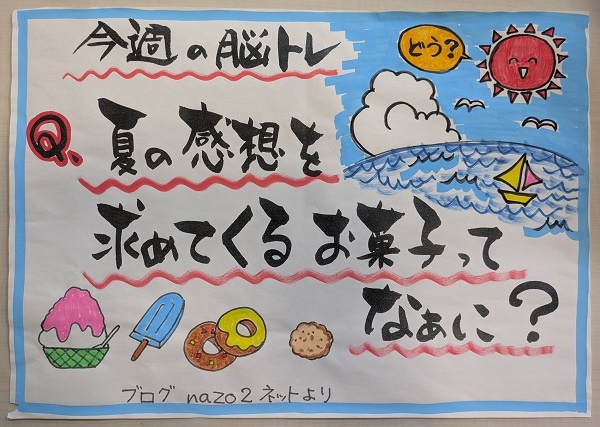 今週の脳トレ
どう?
Q、夏の感想を
求めてくるお菓子って
なぁに?
ブログ nazo2ネットより